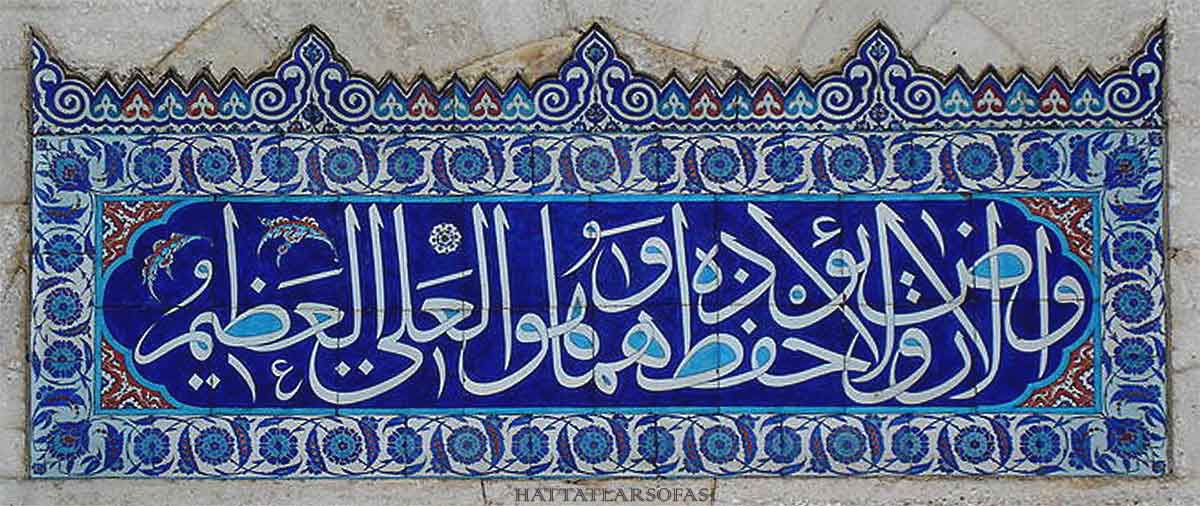 والارض ولا يؤده حفظهما وهو العلي العظيم
HATTATLARSOFASI